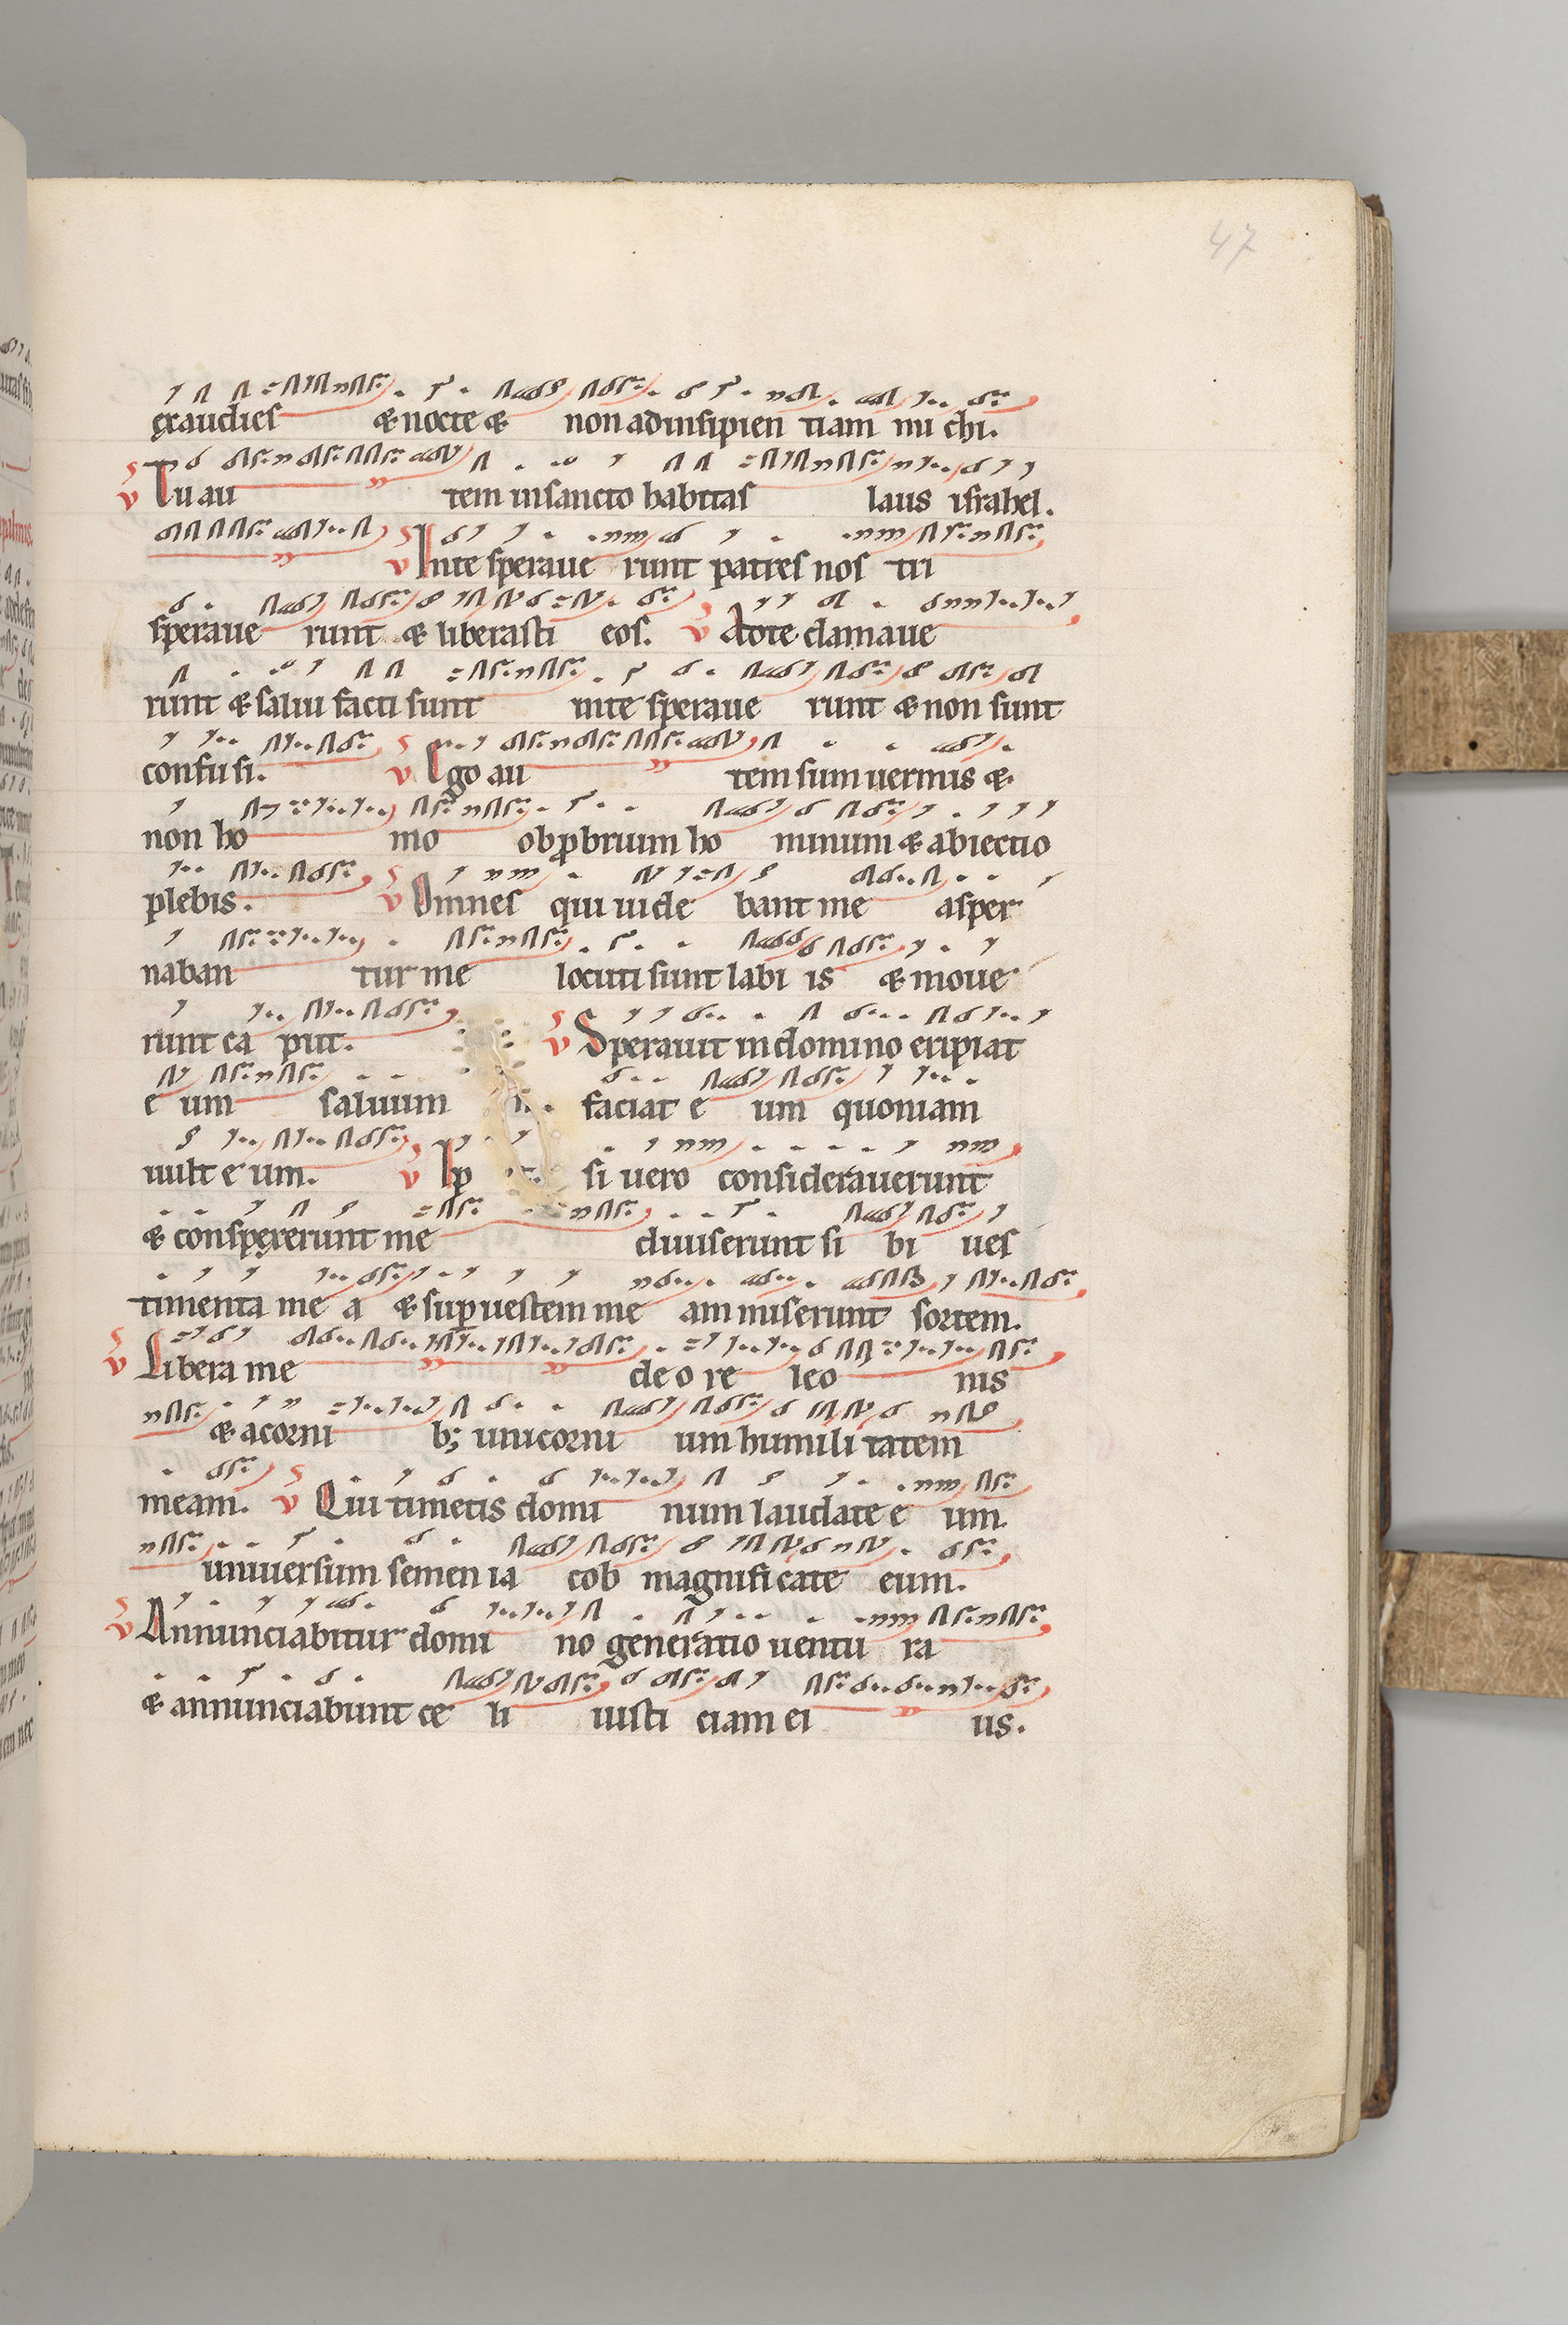 47
exaudies & nocte & non ad insipien tiam mi chi.
v Tu au tem in sancto habitas laus israhel.
v In te speraue runt patres nos tri
speraue runt & liberasti eos. v Ad te clamaue
runt & salui facti sunt in te speraue runt & non sunt
confu si. v Ego au tem sum uermis &
non ho mo obprobrium ho minum & abiectio
plebis. v Omnes qui uide bant me asper
naban tur me locuti sunt labi is & moue
runt ca put. v Sperauit in domino eripiat
e um saluum faciat e um quoniam
uult e um. v Ip si uero considerauerunt
& conspexerunt me diuiserunt si bi ues
timenta me a & sup uestem me am miserunt sortem.
v Libera me de o re leo nis
& a corni b; unicorni um humili tatem
meam. v Qui timetis domi num laudate e um
uniuersum semen ia cob magnificate eum.
v Annunciabitur domi no generatio uentu ra
& annunciabunt ce li iusti ciam ei us.